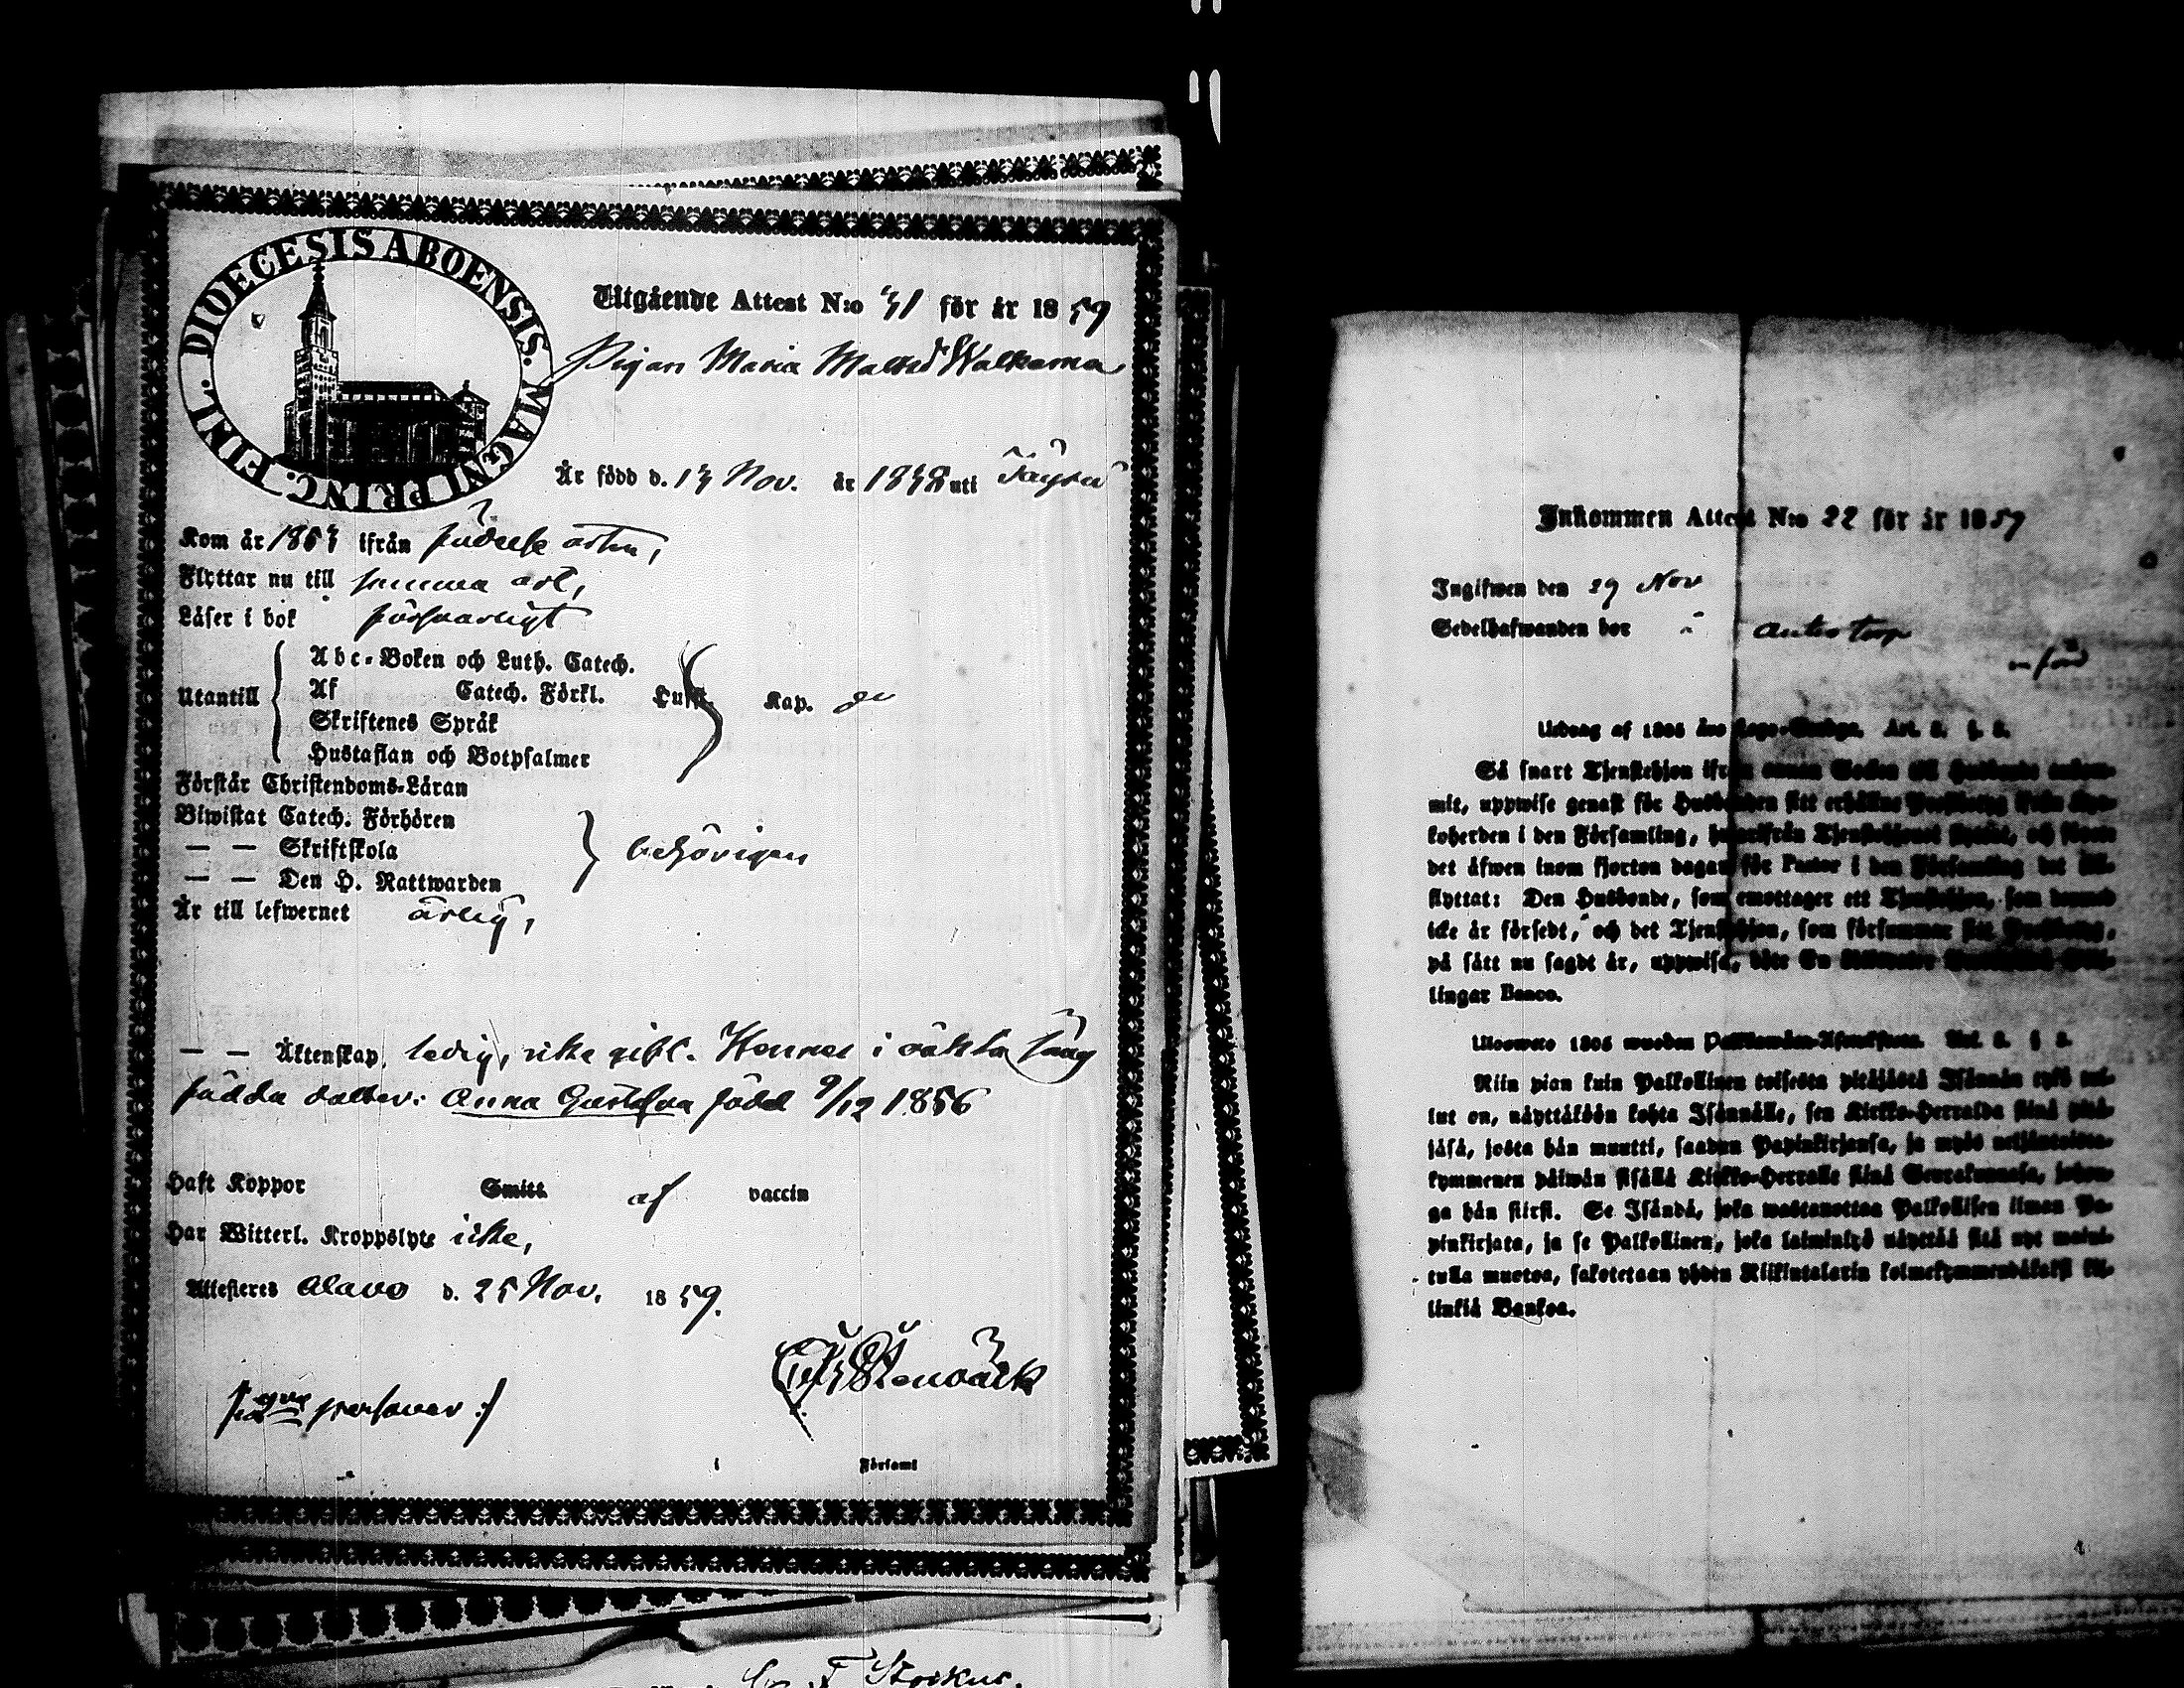 DIOECESIS ABOENSIS. MAGNI PRINC. FINL.
Utgående Attest N:o 31 för år 1859
Pigan Maria Malts Walkama
Är född d. 13 Nov. år 1838 uti Töysä
Kom år 1853 ifrån födelse orten,
Flyttar nu till samma ort,
Läser i bok försvarligt
Utantill
Abc-Boken och Luth. Catech.
Af Catech. Förkl. Kap.
Skriftenes Språk
Hustaflan och Botpsalmer
Förstår Christendoms-Läran
Biwistat Catech. Förhören
— — Skriftskola
— — Den H. Nattwarden
behörigen
Är till lefwernet ärlig,
— — Äktenskap, ledig, icke gift. Hennes i oäkta säng
födda dotter: Anna Gustafva född 9/12 1856
Haft Koppor Smitt af vaccin
Har Witterl. Kroppslyte icke,
Attesteras Alavo d. 25 Nov. 1859.
Stenbäck
personer
i Församl
Inkommen Attest N:o 22 för år 1859
Ingifwen den 29 Nov
Sedelhafwanden bor å
införd
Utdrag af 1805 års Lego-Stadga. Art. 2. §. 2.
Så snart Tjenstehjon ifrån annan Socken till Husbonde ankom-
mit, uppwise genast för Husbonden sitt erhållne Prestbetyg ifrån Kyr-
koherden i den Församling, hwarifrån Tjenstehjonet flyttat, och sedan
det äfwen inom fjorton dagar för Pastor i den Församling det till-
flyttat: Den Husbonde, som emottager ett Tjenstehjon, som dermed
icke är försedt, och det Tjenstehjon, som försummar sitt Prestbetyg,
på sätt nu sagdt är, uppwisa, böte En Riksdaler Skil-
lingar Banco.
Ulosweto 1805 wuoden Palkkawäen-Asetuksesta. Art. 2. § 2.
Niin pian kuin Palkollinen toisesta pitäjästä Isännän tykö tul-
lut on, näyttäköön kohta Isännälle, sen Kirkko-Herralda siinä pitä-
jäsä, josta hän muutti, saadun Papinkirjansa, ja myös neljäntoista-
kymmenen päiwän sisällä Kirkko-Herralle siinä Seurakunnasa, johon-
ga hän siirsi. Se Isändä, joka wastanottaa Palkollisen ilman Pa-
pinkirjata, ja se Palkollinen, joka laiminlyö näyttää sitä nyt mainit-
tulla muotoa, sakotetaan yhden Riikintalarin kolmekymmendäkaksi kil-
linkiä Bankoa.